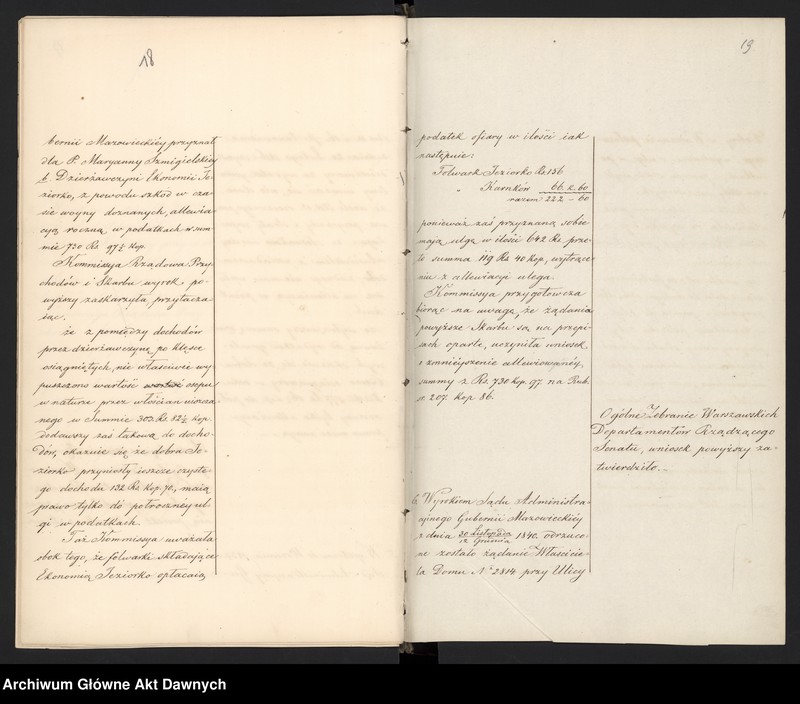 18
bernii Mazowieckiéy przyznał
dla P. Maryanny Szmigielskiey
b. Dzierżawczyni Ekonomii Je-
ziorko, z powodu szkód w cza-
sie woyny doznanych, allewia-
cyą roczną w podatkach w sum-
mie 730 Rs 97½ Kop.
Kommissya Rządowa Przy-
chodów i Skarbu wyrok po-
wyższy zaskarżyła przytacza-
iąc.
że z pomiędzy dochodów
przez dzierżawczynią po klęsce
osiągniętych, nie właściwie wy-
puszczono wartość osepu
w naturze przez włościan niszcza-
nego w Summie 303 Rs. 82½ Kop
dodawszy zaś takową do docho-
dów, okazuie się że dobra Je-
ziorko przyniosły ieszcze czyste-
go dochodu 132 Rs. Kop. 70, maią
prawo tylko do półroczney ul-
gi w podatkach.
Taż Kommissya uważała
obok tego, że folwarki składaiące
Ekonomią Jeziorko opłacaią
19
podatek ofiary w ilości iak
następuie:
Folwark Jeziorko Rs 156
" Karnków 66. k. 60
razem: 222 - 60
ponieważ zaś przyznaną sobie
maią ulgę w ilości 642 Rs prze-
to summa 119 Rs 40 Kop, wytrące-
niu z allewiacyi ulega.
Kommissya przygotowcza
biorąc na uwagę, że żądania
powyższe Skarbu są na przepi-
sach oparte, uczyniła wniosek
o zmnieyszenie allewiowanéy
summy z Rs. 730 Kop. 97. na Rub.
sr. 207. Kop 86.
Ogólne Zebranie Warszawskich
Departamentów Rządzącego
Senatu, wniosek powyższy za-
twierdziło.-
6. Wyrokiem Sądu Administra-
cyjnego Gubernii Mazowieckiéy
z dnia 30 Listopada
12 Grudnia 1840. odrzuco-
ne zostało żądanie Właścicie-
la Domu No 2814 przy Ulicy